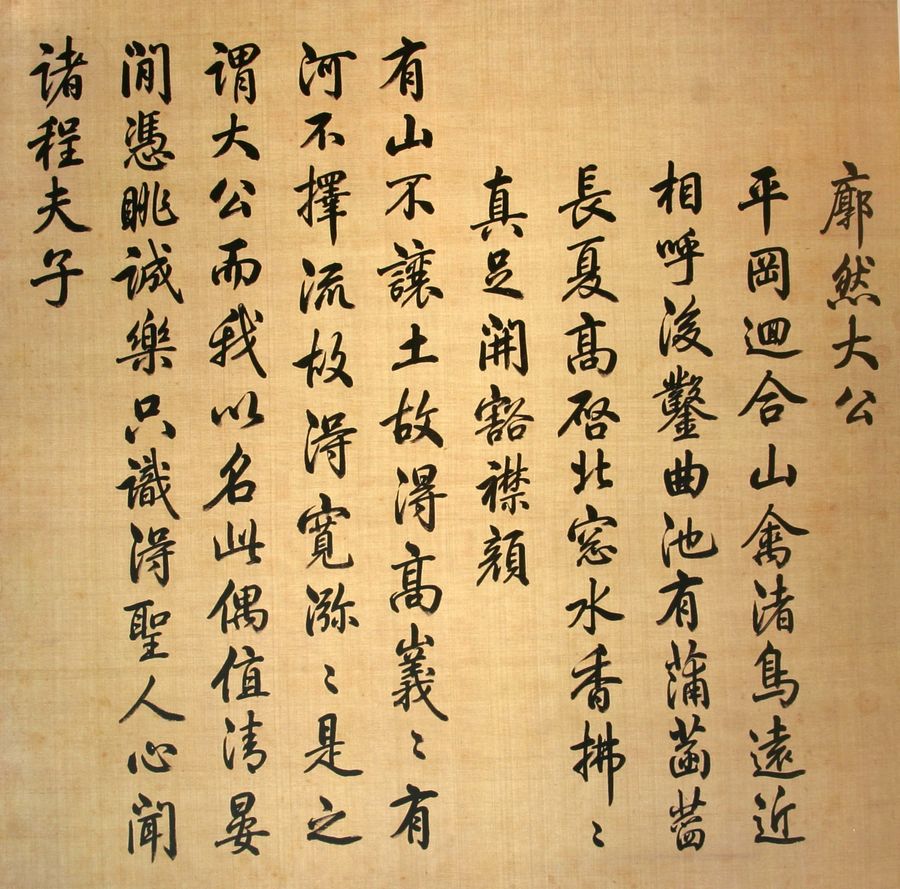 廓然大公
平岡迴合山禽渚鳥遠近
相呼後鑿曲池有蒲菡萏
長夏高啓北窓水香拂〻
真足開豁襟顔
有山不讓土故得高嶪〻有
河不擇流故得寬瀰〻是之
謂大公而我以名此偶值清晏
閒憑眺誠樂只識得聖人心聞
諸程夫子